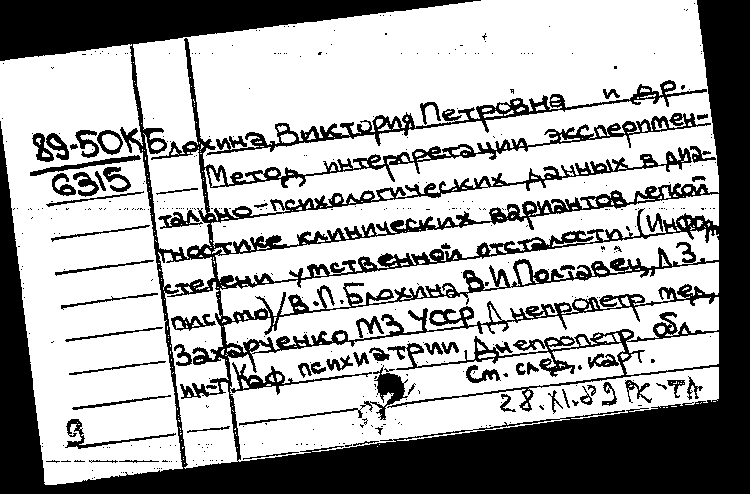 89-50К
6315
Блохина, Виктория Петровна и др.
Метод интерпретации эксперимен-
тально-психологических данных в диа-
гностике клинических вариантов легкой
степени умственной отсталости: (Информ.
письмо) / В.П. Блохина, В.И. Полтавец, Л.З.
Захарченко, МЗ УССР, Днепропетр. мед.
ин-т. Каф. психиатрии, Днепропетр. обл.
См. след. карт.
9
28.XI.89